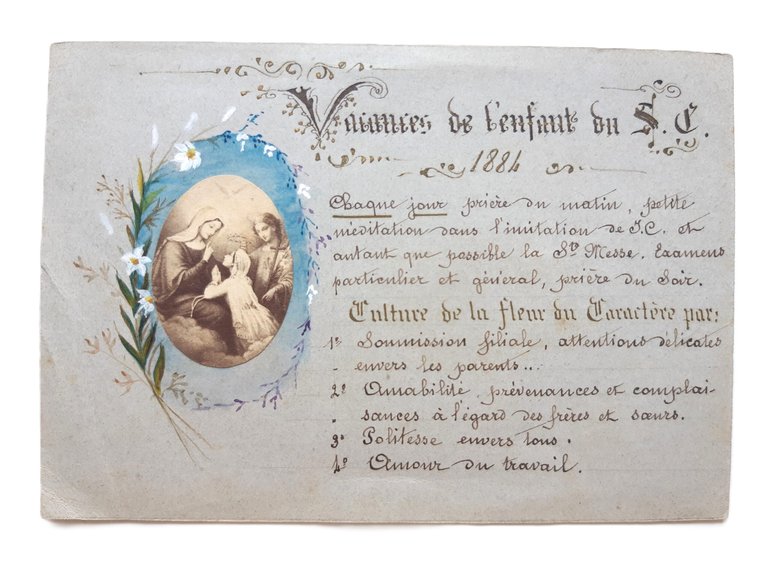 Vacances de l'enfant du S. C.
1884
Chaque jour prière du matin, petite
méditation dans l'imitation de J.C. et
autant que possible la Ste Messe. Examens
particulier et général, prière du Soir.
Culture de la fleur du Caractère par:
1º Soumission filiale, attentions délicates
envers les parents...
2º Amabilité, prévenances et complai-
sances à l'égard des frères et sœurs.
3º Politesse envers tous.
4º Amour du travail.